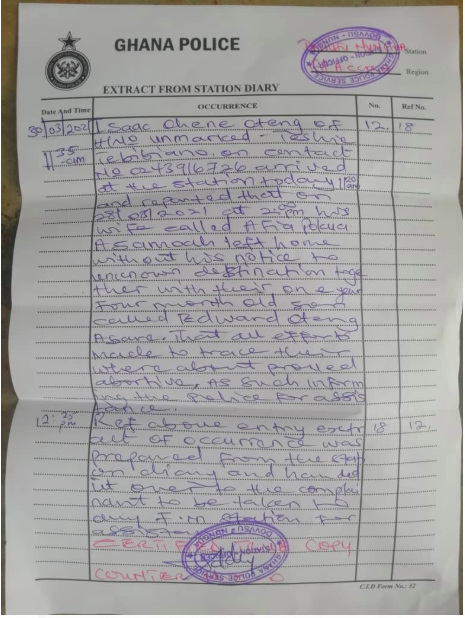 GHANA POLICE
Station
Region
EXTRACT FROM STATION DIARY
Date And Time OCCURRENCE No. Ref No.
30/03/2021 Isaac Ohene Oteng of 12. 18
H/No unmarked - Teshie
11:35 am lebibiano, on contact
No 0243916726 arrived
at the station today 11:20 am
and reported that on
28/03/2021 at 2:00pm his
wife called Afia Pokuaa
Asamoah left home
without his notice to
unknown destination toge
ther with their one year
four month old son
called Edward Oteng
Asare. That all efforts
made to trace their
where about proved
abortive, As such inform
ing the Police for assis
tance.
12:25 pm Ref above entry extr 18 12.
act of occurrence was
prepared from the stati
on diary and handed
it over to the complai
nant to be taken to
any F.m station for
CERTIFIED COPY
COUNTER
C.I.D Form No.: 32